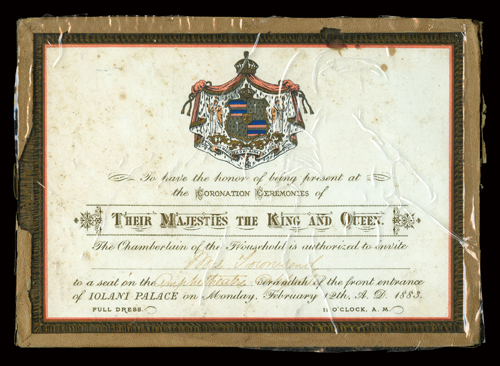 To have the honor of being present at
the CORONATION CEREMONIES of
THEIR MAJESTIES THE KING AND QUEEN.
The Chamberlain of the Household is authorized to invite
Mrs Townsend
to a seat on the amphitheatre Verandah of the front entrance
of IOLANI PALACE on Monday, February 12th, A. D. 1883.
FULL DRESS. 11 O'CLOCK, A. M.